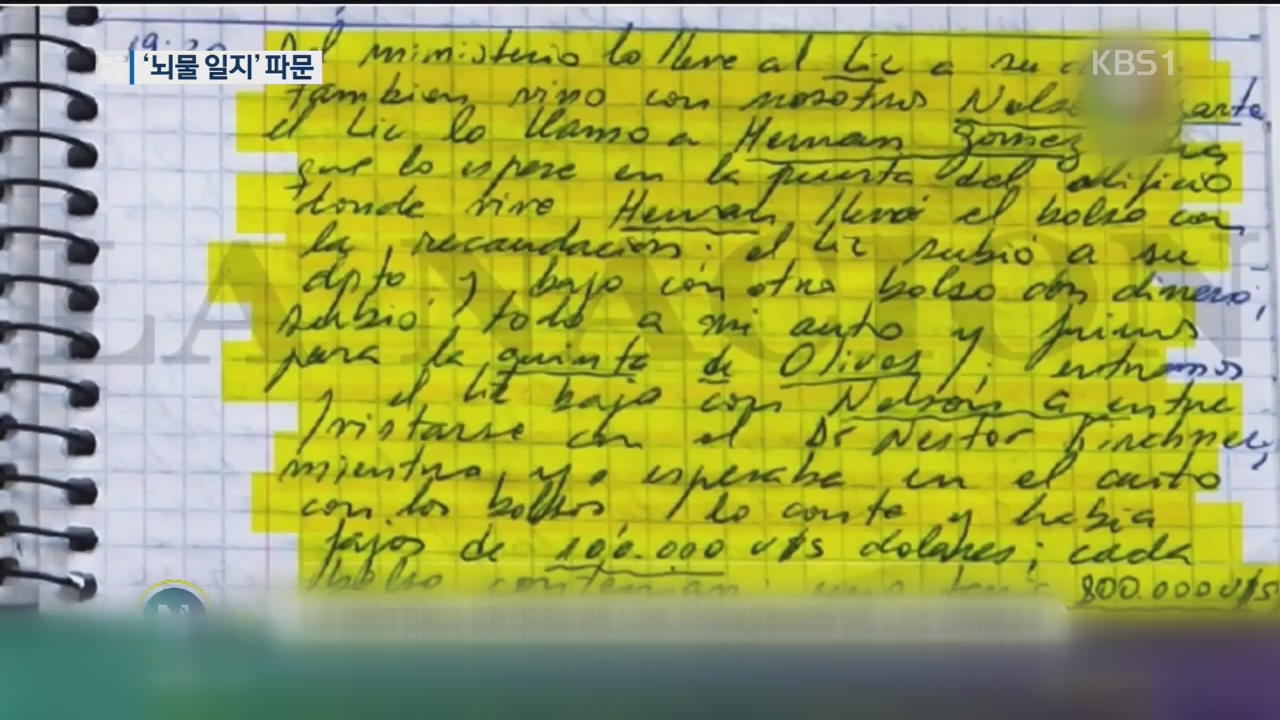 '뇌물 일지' 파문
KBS1
19:20 Del ministerio lo lleve al Lic a su
tambien vino con nosotros
el Lic lo llamo a Hernan Gomez
que lo espere en la puerta del edificio
donde vive, Hernan llevó el bolso con
la recaudación; el Lic subió a su
dpto y bajo con otro bolso con dinero,
subió todo a mi auto y fuimos
para la quinta de Olivos, entramos
y el Lic bajo con Nelson a entre
/vistarse con el Dr Nestor Kirchner,
mientras yo esperaba en el auto
con los bolsos, lo conte y habia
fajos de 100.000 U$S dolares; cada
bolso contenian 800.000 U$S
LA NACION
N